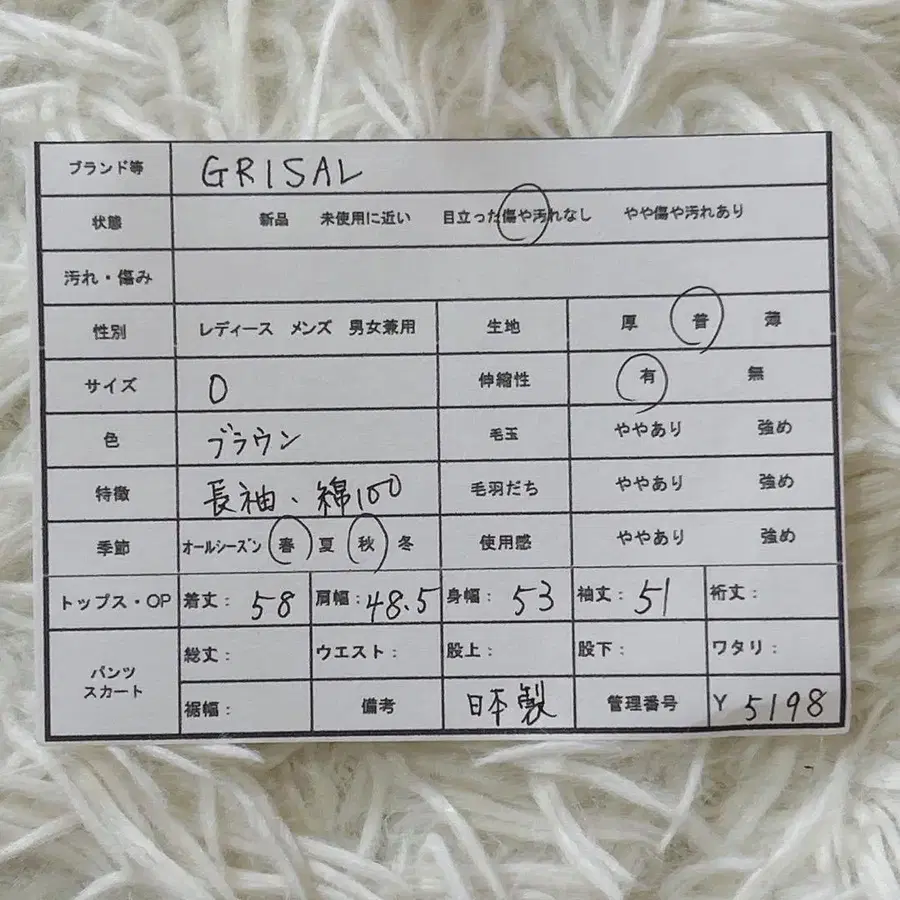 ブランド等 GRISAL
状態 新品 未使用に近い 目立った傷や汚れなし やや傷や汚れあり
汚れ・傷み
性別 レディース メンズ 男女兼用 生地 厚 普 薄
サイズ 0 伸縮性 有 無
色 ブラウン 毛玉 ややあり 強め
特徴 長袖、綿100 毛羽だち ややあり 強め
季節 オールシーズン 春 夏 秋 冬 使用感 ややあり 強め
トップス・OP 着丈: 58 肩幅: 48.5 身幅: 53 袖丈: 51 裄丈:
パンツ スカート 総丈: ウエスト: 股上: 股下: ワタリ:
裾幅: 備考 日本製 管理番号 Y 5198